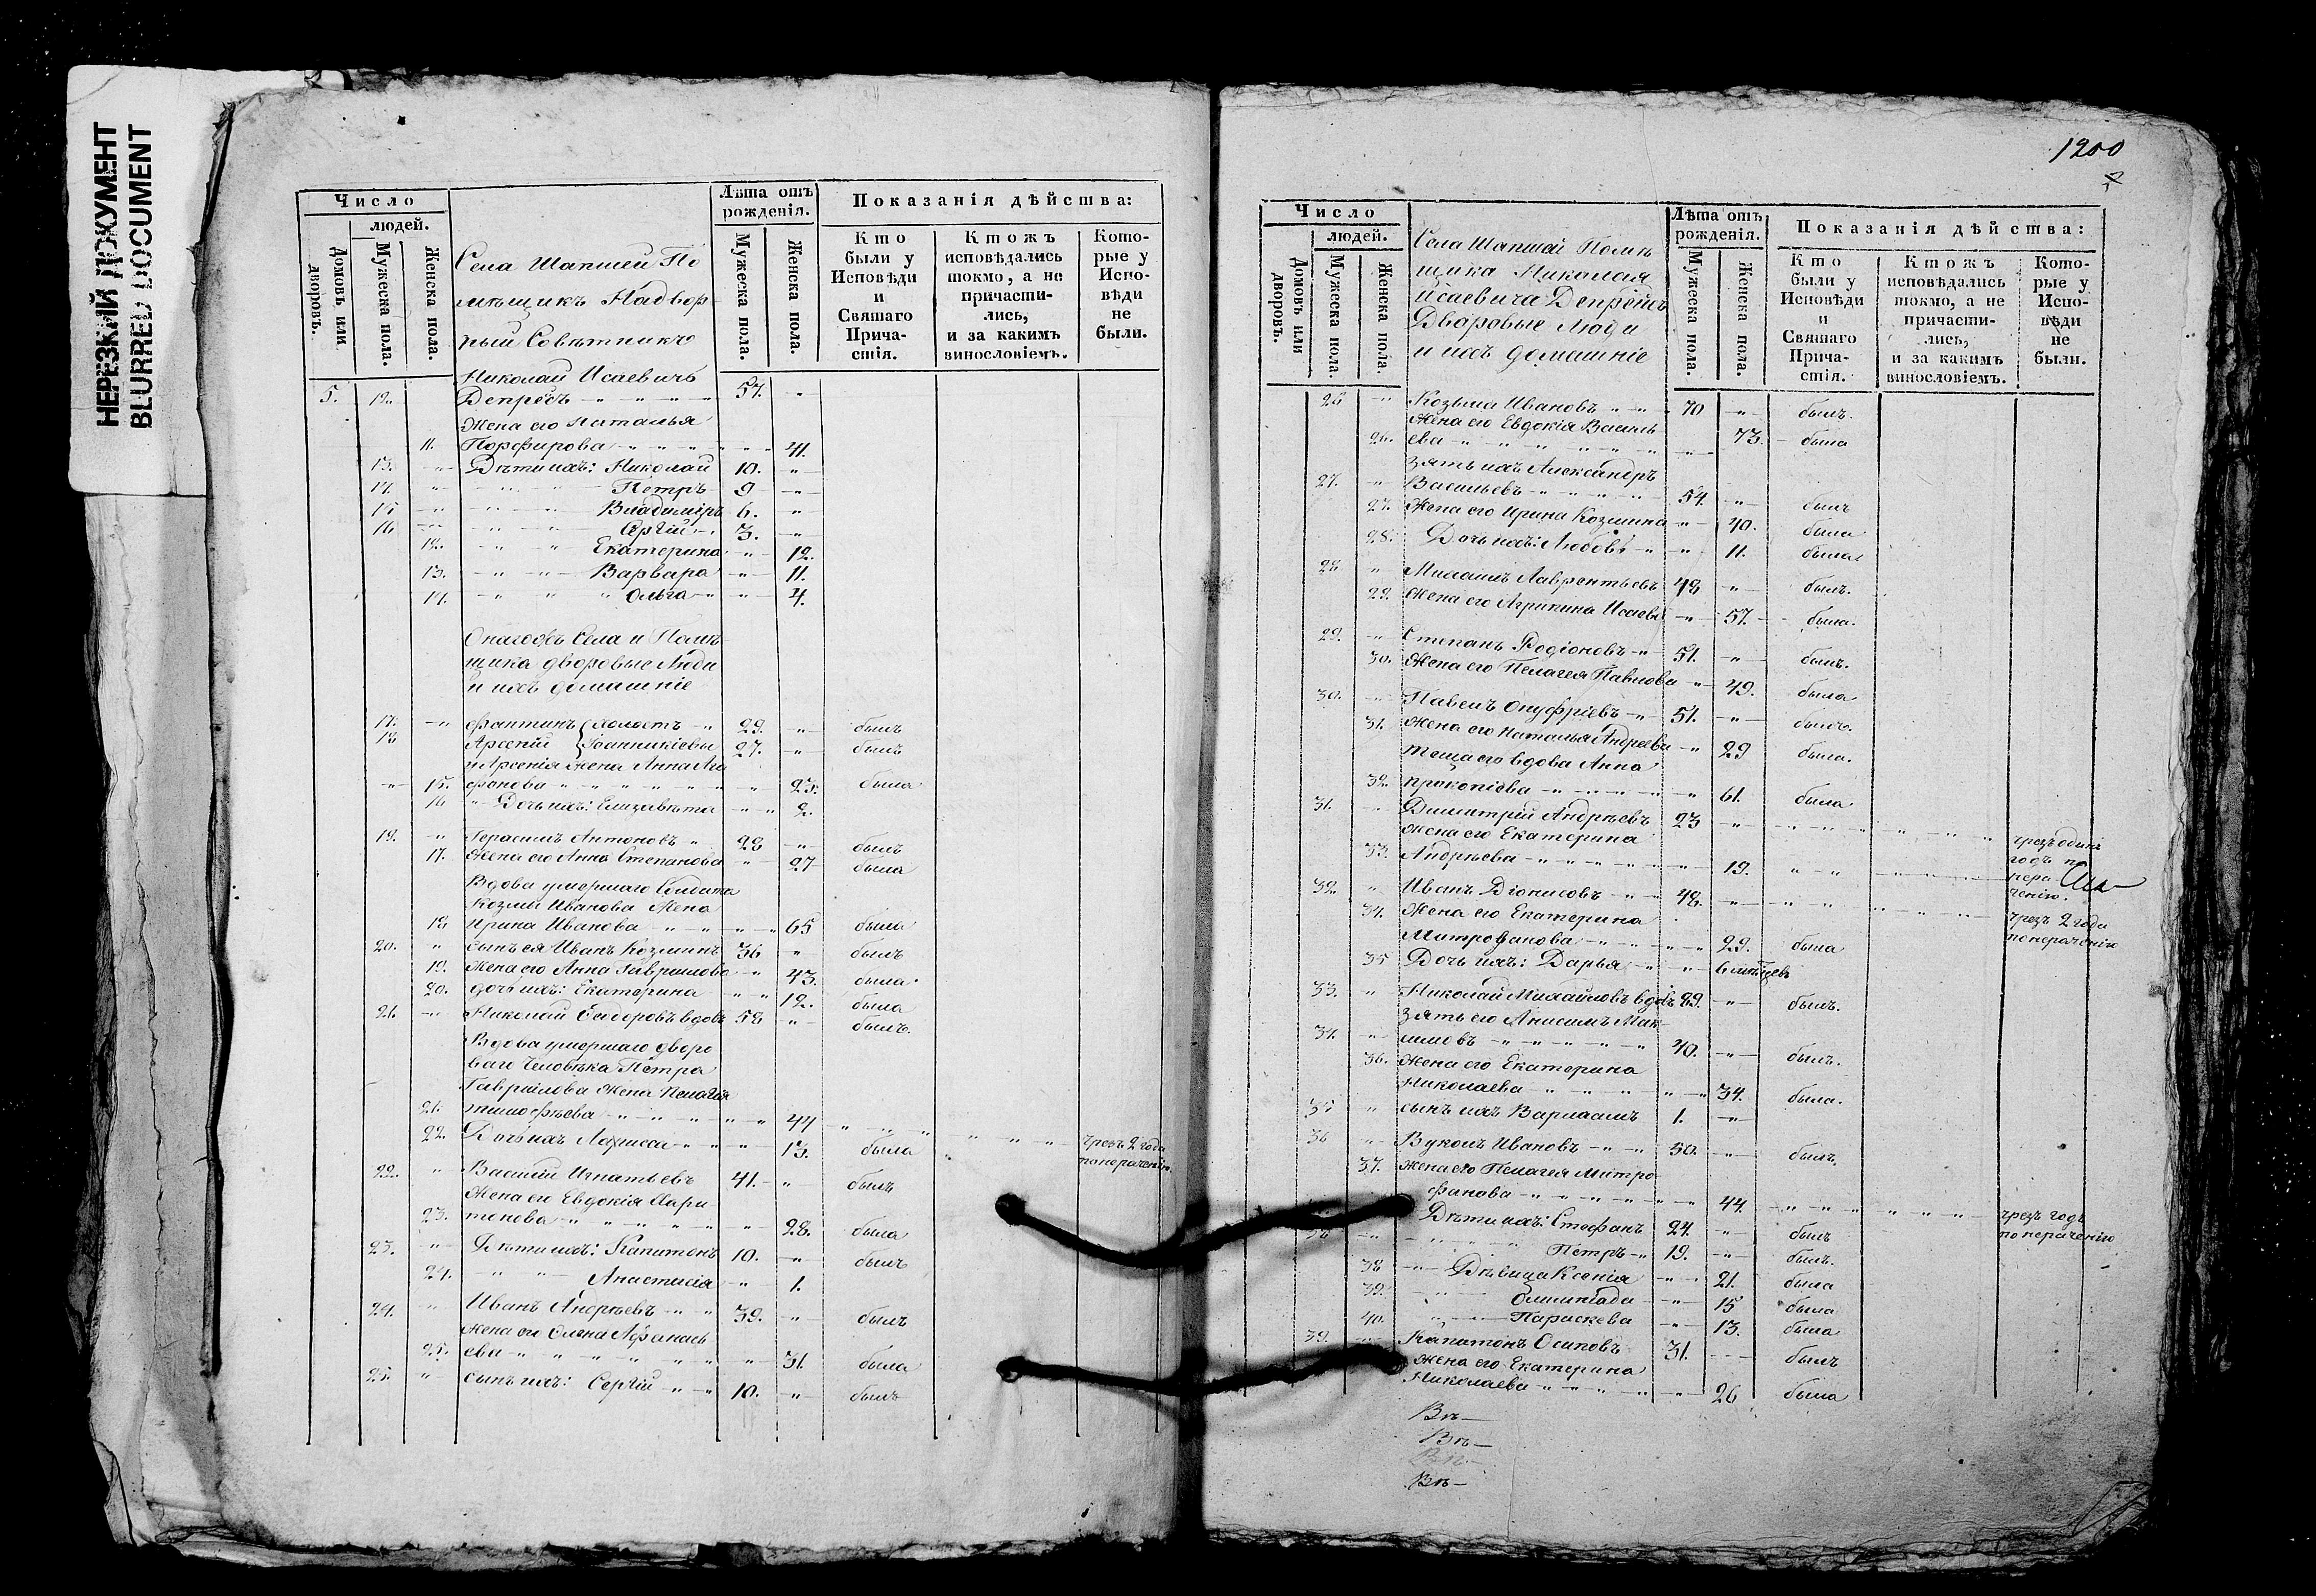 НЕРЕЗКИЙ ДОКУМЕНТ
BLURRED DOCUMENT
Число
людей.
Домовъ или дворовъ.
Мужеска пола.
Женска пола.
Села Шапшей По
мѣщикъ Надвор
ный Совѣтникъ
Лѣта отъ
рожденія.
Мужеска пола.
Женска пола.
Показанія дѣйства:
Кто были у Исповѣди и Святаго Причастія.
Ктожъ исповѣдались токмо, а не причастились, и за какимъ винословіемъ.
Которые у Исповѣди не были.
Николай Исаевичъ
5. 12. Депресъ 57.
Жена его Наталья
11. Порфирова 41.
13. Дѣти ихъ: Николай 10.
14. Петръ 9
15 Владимиръ 6.
16 Сергій 3.
12. Екатерина 12.
13. Варвара 11.
14. Ольга 4.
Онагожъ Села и Помѣ
щика дворовые Люди
и ихъ домашніе
17. Фантинъ холостъ 29. былъ
18 Арсеній Іоанникіевы 27. былъ
и Арсенія жена Анна Ага
15. фонова 23. была
16 Дочь ихъ: Елизавета 2.
19. Герасимъ Антоновъ 28 былъ
17. Жена его Анна Степанова 27 была
Вдова умершаго Солдата
Козмы Иванова Жена
18 Ирина Иванова 65 была
20. сынъ ея Иванъ Козминъ 36 былъ
19. Жена его Анна Гаврилова 43. была
20. дочь ихъ: Екатерина 12. была
21. Николай Сидоровъ вдовъ 58 былъ
Вдова умершаго дворо
ваго Человѣка Петра
Гаврилова Жена Пелагія
21. тимофѣева 44 чрезъ 2 года
22. Дочь ихъ Лариса 13. была понераченію
22. Василій Игнатьевъ 41. былъ
Жена его Евдокія Хари
23. тонова 28. была
23. Дѣти ихъ: Капитонъ 10. былъ
24. Анастасія 1.
24. Иванъ Андреевъ 39. былъ
жена его Олена Афанась
25. ева 31. была
25. сынъ ихъ: Сергій 10. былъ
1200
Число
людей.
Домовъ или дворовъ.
Мужеска пола.
Женска пола.
Села Шапшей Помѣ
щика Николая
Исаевича Депрейсъ
Дворовые Люди
и ихъ домашніе
Лѣта отъ
рожденія.
Мужеска пола.
Женска пола.
Показанія дѣйства:
Кто были у Исповѣди и Святаго Причастія.
Ктожъ исповѣдались токмо, а не причастились, и за какимъ винословіемъ.
Которые у Исповѣди не были.
26 Козьма Ивановъ 70 былъ.
Жена его Евдокія Василь
26. ева 73. была
зять ихъ Александръ
27. Васильевъ 54. былъ
27. Жена его Ирина Козмина 40. была
28. Дочь ихъ: Любовь 11. была
28 Михаилъ Лаврентьевъ 48 былъ.
29. Жена его Агрипина Исаева 57. была.
29. Степанъ Родіоновъ 51. былъ.
30. Жена его Пелагея Павлова 49. была
30. Павелъ Онуфріевъ 51. былъ.
31. Жена его Наталья Андреева 29 была.
теща его вдова Анна
32 прокопіева 61. была
31. Димитрій Андреевъ 23 чрезъ одинъ
Жена его Екатерина годъ по
33. Андреева 19. нера
32 Иванъ Діонисовъ 48. ченію.
34. Жена его Екатерина чрезъ 2 года
Митрофанова 29. была понераченію
35 Дочь ихъ: Дарья 6 мѣсяцевъ
33. Николай Михайловъ вдовъ 89. былъ.
Зять его Анисимъ Мак
34. симовъ 40. былъ.
36. Жена его Екатерина
Николаева 34. была.
35 сынъ ихъ Варлаамъ 1.
36 Вуколъ Ивановъ 50. былъ.
37. жена его Пелагея Митро
фанова 44. чрезъ годъ
Дѣти ихъ: Стефанъ 24. былъ понераченію
38 Петръ 19. былъ.
38 Дѣвица Ксенія 21. была
39. Олимпіада 15 была
40. Параскева 13. была
39. Капитонъ Осиповъ 31. былъ
Жена его Екатерина
Николаева 26 была
Въ
Въ
Въ
Въ